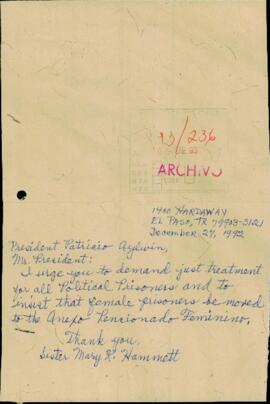 93/236
ARCHIVO
1400 HARDAWAY
EL PASO, TX 79903-3121
December 27, 1992
President Patricio Aylwin,
Mr. President:
I urge you to demand just treatment
for all Political Prisoners and to
insist that female prisoners be moved
to the Anexo Pencionado Feminino.
Thank you,
Sister Mary R. Hammett